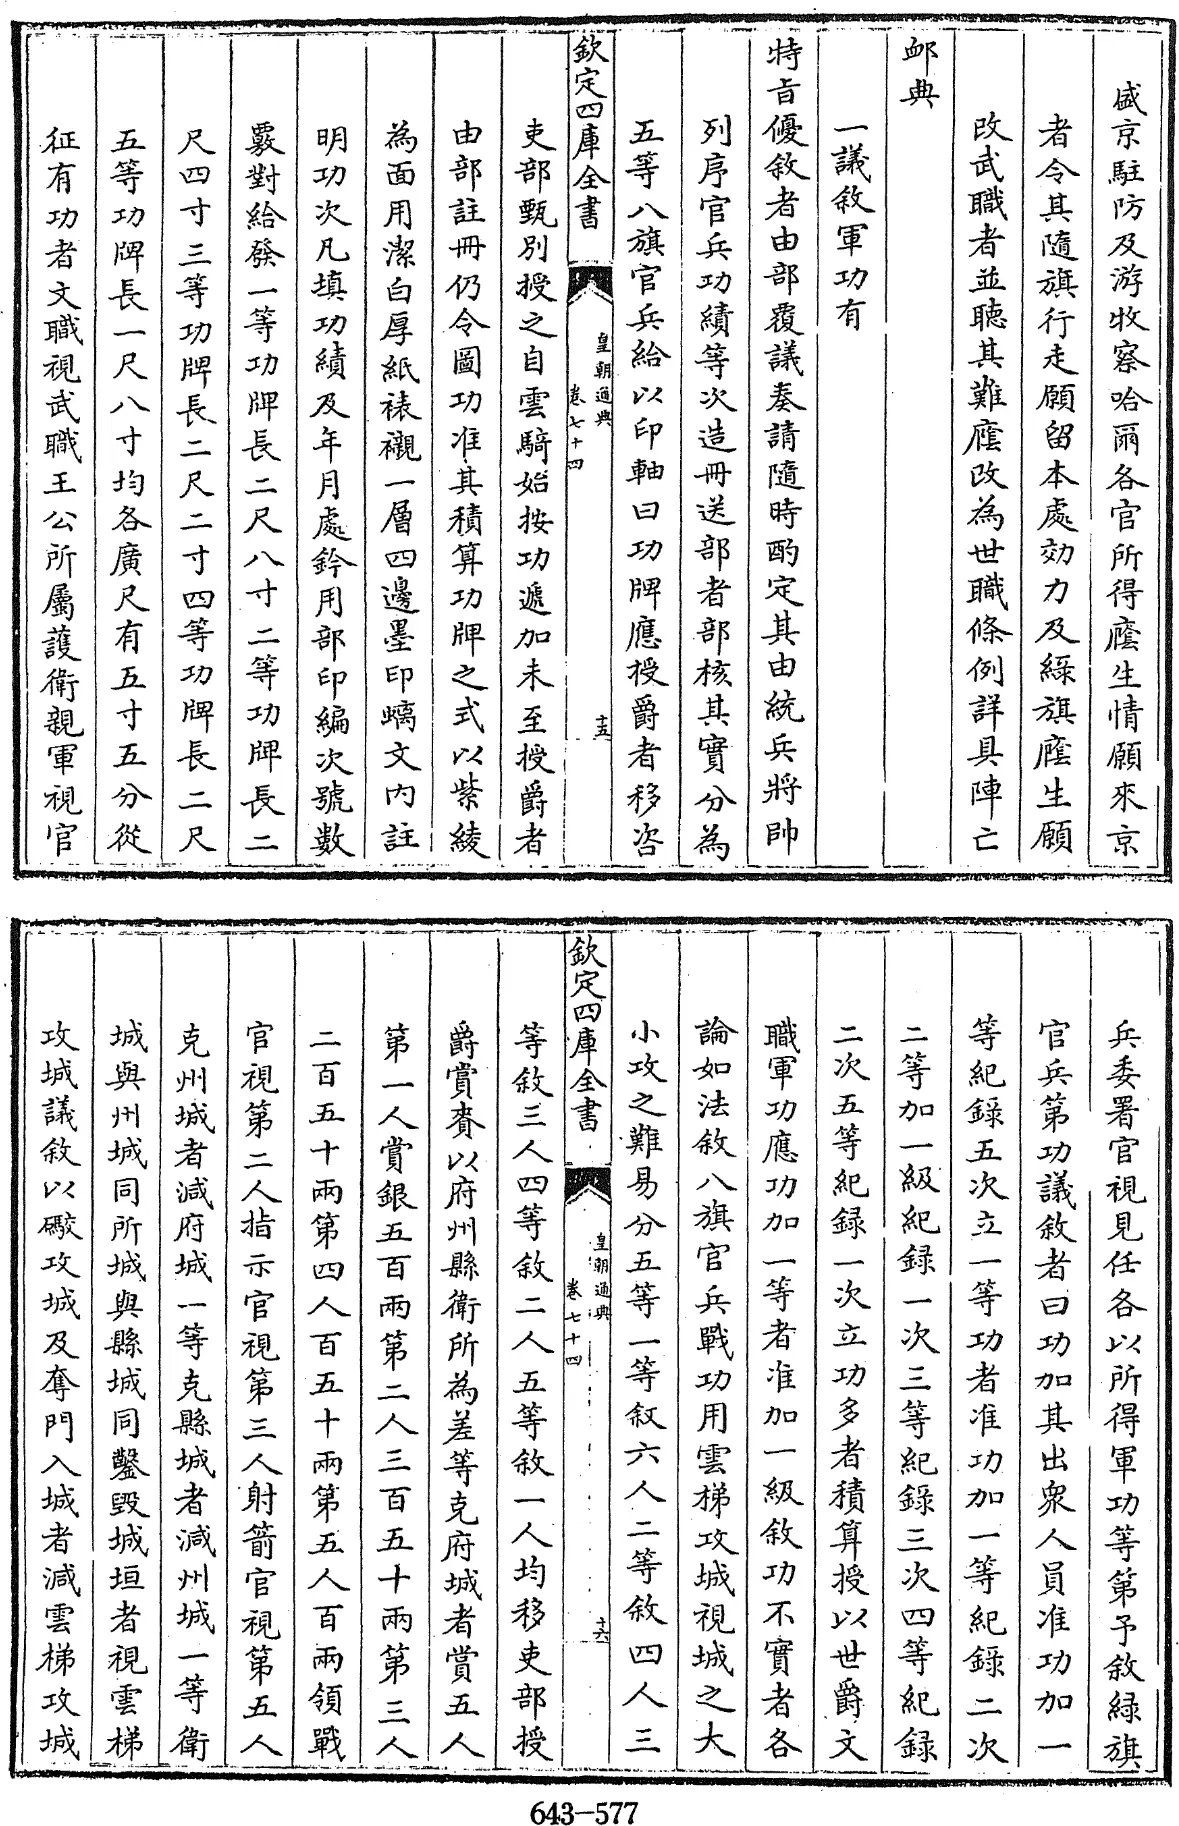 盛京駐防及游牧察哈爾各官所得廕生情願來京
者令其隨旗行走願留本處効力及綠旗廕生願
改武職者並聽其難廕改為世職條例詳具陣亡
卹典
一議敘軍功有
特旨優敘者由部覆議奏請隨時酌定其由統兵將帥
列序官兵功績等次造冊送部者部核其實分為
五等八旗官兵給以印軸曰功牌應授爵者移咨
欽定四庫全書
皇朝通典
卷七十四
十五
吏部甄別授之自雲騎始按功遞加未至授爵者
由部註冊仍令圖功准其積算功牌之式以紫綾
為面用潔白厚紙裱襯一層四邊墨印螭文內註
明功次凡填功績及年月處鈐用部印編次號數
覈對給發一等功牌長二尺八寸二等功牌長二
尺四寸三等功牌長二尺二寸四等功牌長二尺
五等功牌長一尺八寸均各廣尺有五寸五分從
征有功者文職視武職王公所屬護衛親軍視官
兵委署官視見任各以所得軍功等第予敘綠旗
官兵第功議敘者曰功加其出眾人員准功加一
等紀錄五次立一等功者准功加一等紀錄二次
二等加一級紀錄一次三等紀錄三次四等紀錄
二次五等紀錄一次立功多者積算授以世爵文
職軍功應功加一等者准加一級敘功不實者各
論如法敘八旗官兵戰功用雲梯攻城視城之大
小攻之難易分五等一等敘六人二等敘四人三
欽定四庫全書
皇朝通典
卷七十四
十六
等敘三人四等敘二人五等敘一人均移吏部授
爵賞賚以府州縣衛所為差等克府城者賞五人
第一人賞銀五百兩第二人三百五十兩第三人
二百五十兩第四人百五十兩第五人百兩領戰
官視第二人指示官視第三人射箭官視第五人
克州城者減府城一等克縣城者減州城一等衛
城與州城同所城與縣城同鑿毀城垣者視雲梯
攻城議敘以礮攻城及奪門入城者減雲梯攻城
643-577